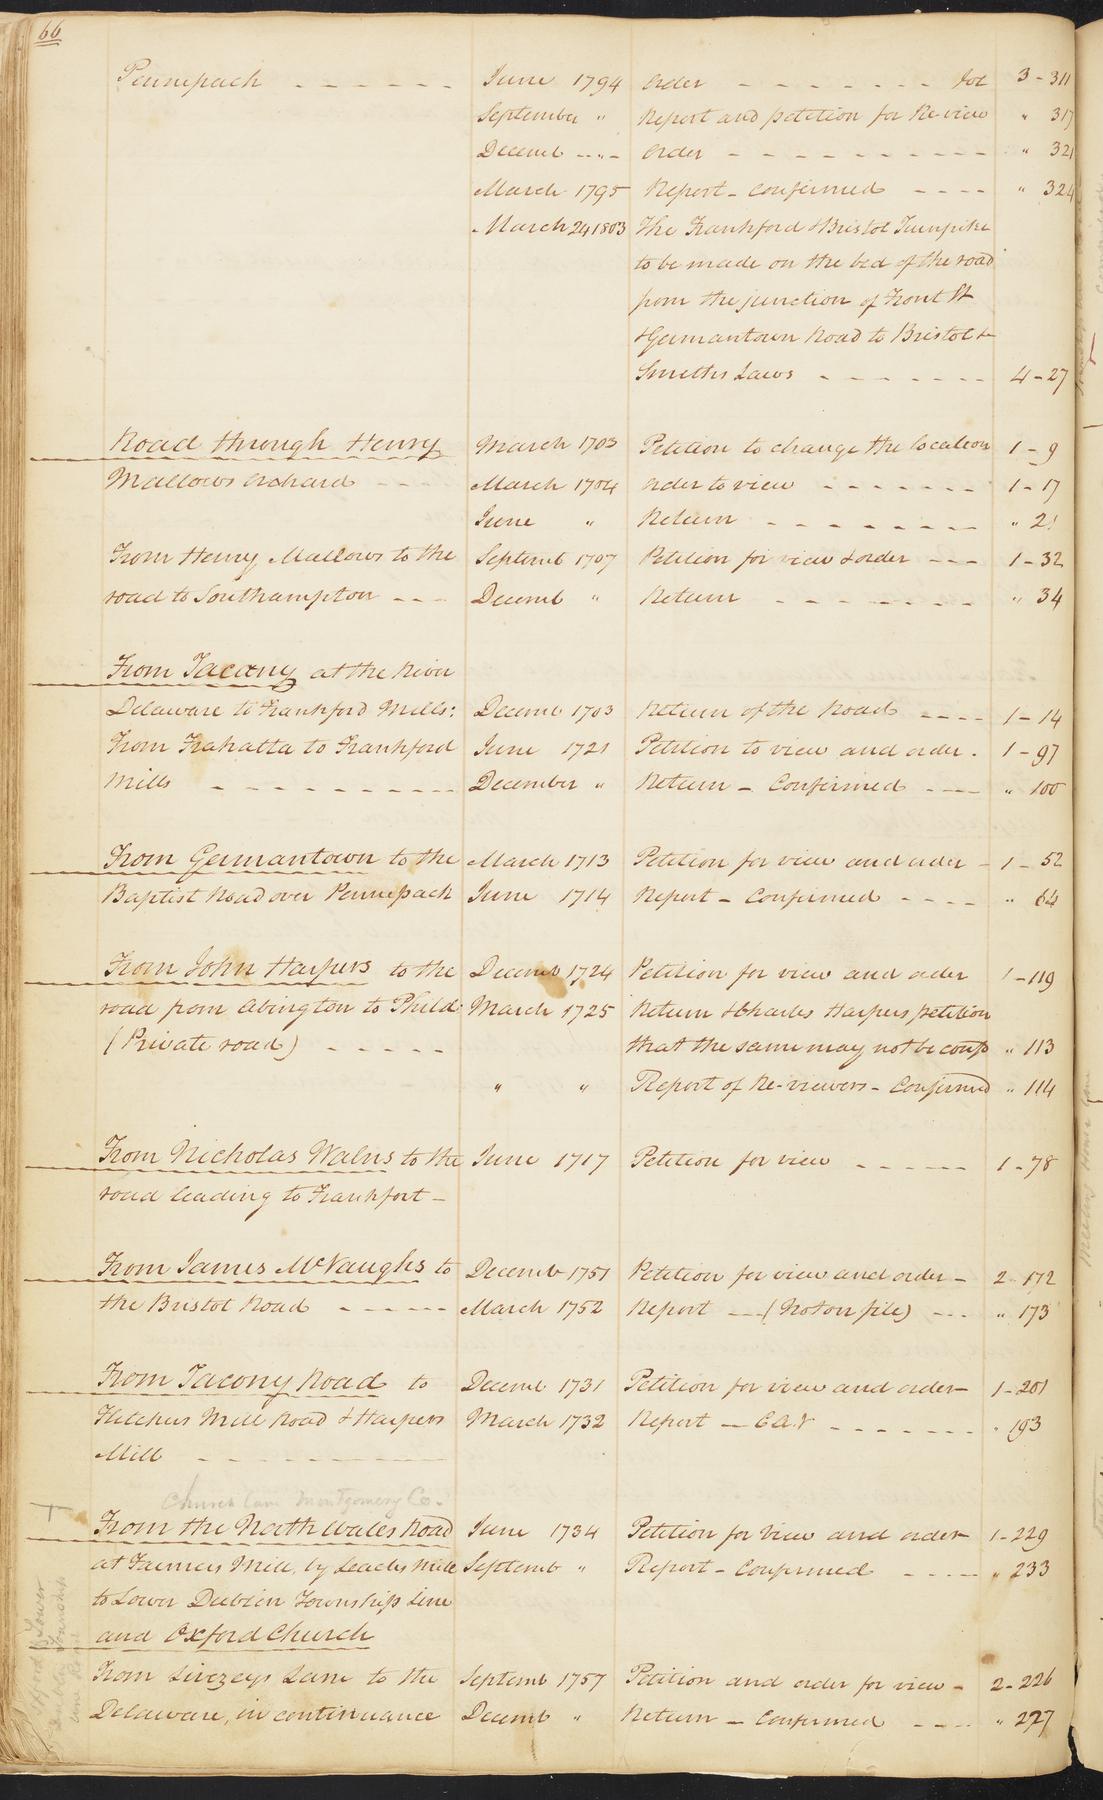 66
Pennepach - - - - - - June 1794 Order - - - - - - - - Vol 3 - 311
September " Report and petition for Re-view " 317
Decemb - - " - Order - - - - - - - - - - - " 321
March 1795 Report - Confirmed - - - - " 324
March 24 1803 The Frankford & Bristol Turnpike
to be made on the bed of the road
from the junction of Front St
& Germantown Road to Bristol &
Smiths Laws - - - - - - - 4 - 27
Road through Henry March 1703 Petition to change the location 1 - 9
Mallows Orchard - - - - March 1704 Order to view - - - - - - - 1 - 17
June " Return - - - - - - - - - " 21
From Henry Mallows to the Septemb 1707 Petition for view & order - - - 1 - 32
road to Southampton - - - Decemb " Return - - - - - - - - " 34
From Tacony at the River
Delaware to Frankford Mills: Decemb 1703 Return of the Road - - - - 1 - 14
From Frahatta to Frankford June 1721 Petition to view and order - 1 - 97
Mills - - - - - - - - - - December " Return - Confirmed - - - " 100
From Germantown to the March 1713 Petition for view and order - 1 - 52
Baptist Road over Pennepack June 1714 Report - Confirmed - - - - " 64
From John Harpers to the Decemb 1724 Petition for view and order 1 - 119
road from Abington to Philda March 1725 Return & Charles Harpers petition
(Private road) - - - - - that the same may not be conf " 113
" " Report of Re-viewers - Confirmed " 114
From Nicholas Walns to the June 1717 Petition for view - - - - - - 1 - 78
road leading to Frankfort -
From James McVaughs to Decemb 1751 Petition for view and order - 2 - 172
the Bristol Road - - - - - March 1752 Report - - (Not on file) - - - " 173
From Tacony Road to Decemb 1731 Petition for view and order - 1 - 201
Fletchers Mill Road & Harpers March 1732 Report - C A V - - - - - - - " 193
Mill - - - - - - - - - -
Church Lane Montgomery Co.
From the North Wales Road June 1734 Petition for view and order - 1 - 229
at Farmers Mill, by Leechs Mill Septemb " Report - Confirmed - - - - " 233
to Lower Dublin Township line
and Oxford Church
From Livezeys Lane to the Septemb 1757 Petition and order for view - 2 - 226
Delaware, in continuance Decemb " Return - Confirmed - - - - " 227
Oxford & Lower
Dublin Township